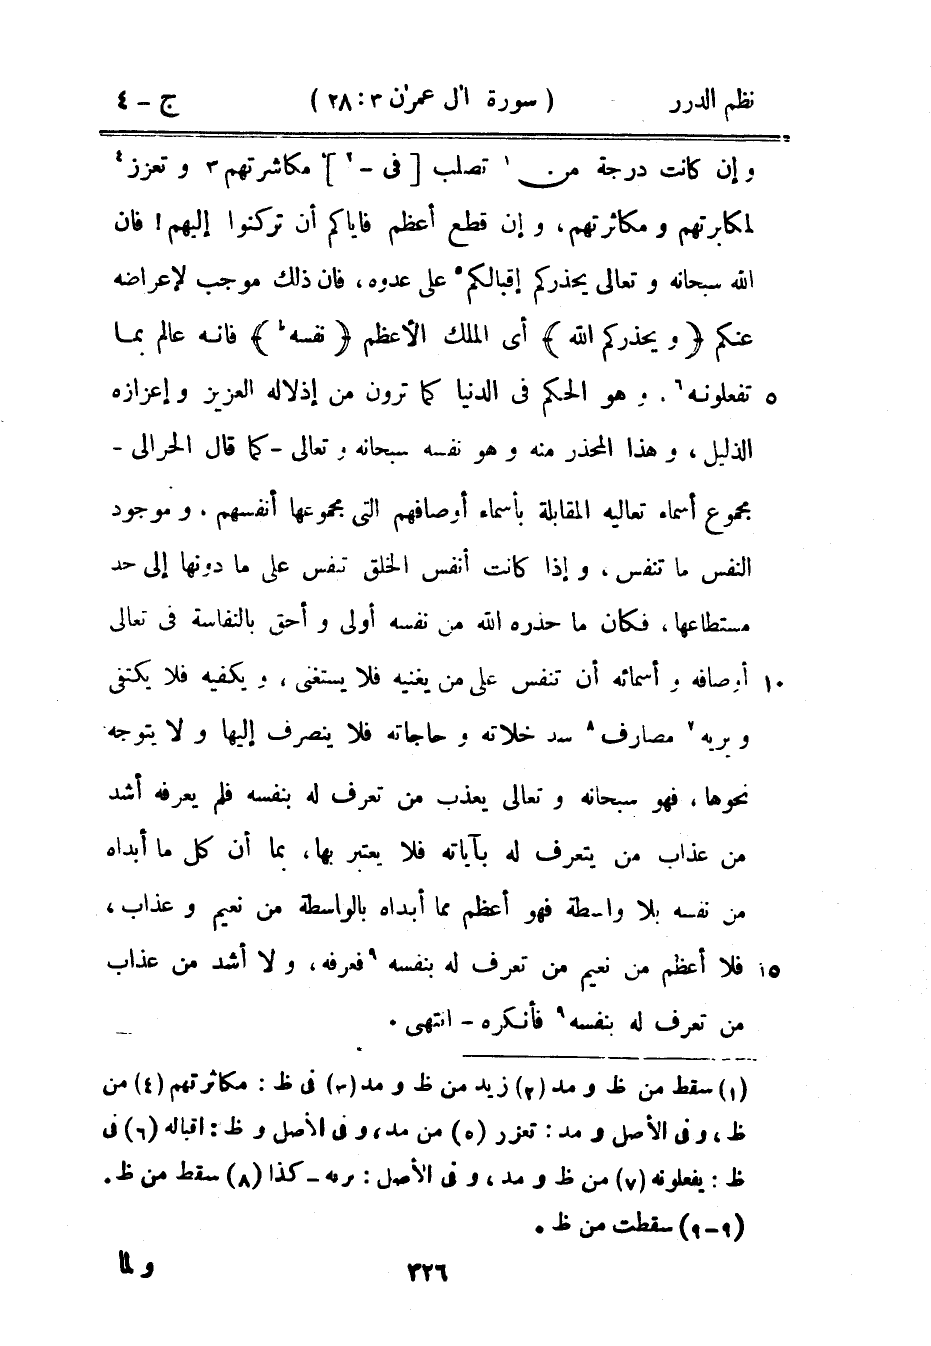 نظم الدرر ( سورة اٰل عمرٰن ٣ : ٢٨ ) ج - ٤
و إن كانت درجة من ١ تصلب [ فى - ٢ ] مكاشرتهم ٣ و تعزز ٤
لمكابرتهم و مكاثرتهم ، و إن قطع أعظم فاياكم أن تركنوا إليهم ! فان
الله سبحانه و تعالى يحذركم إقبالكم ٥ على عدوه ، فان ذلك موجب لإعراضه
عنكم ﴿ و يحذركم الله ﴾ أى الملك الأعظم ﴿ نفسه ط ﴾ فانه عالم بما
٥ تفعلونه ٦ . و هو الحكم فى الدنيا كما ترون من إذلاله العزيز و إعزازه
الذليل ، و هذا المحذر منه و هو نفسه سبحانه و تعالى - كما قال الحرالى -
مجموع أسماء تعاليه المقابلة بأسماء أوصافهم التى مجموعها أنفسهم . و موجود
النفس ما تنفس ، و إذا كانت أنفس الخلق تنفس على ما دونها إلى حد
مستطاعها ، فكان ما حذره الله من نفسه أولى و أحق بالنفاسة فى تعالى
١٠ أوصافه و أسمائه أن تنفس على من يغنيه فلا يستغنى ، و يكفيه فلا يكتفى
و يريه ٧ مصارف ٨ سد خلاته و حاجاته فلا ينصرف إليها و لا يتوجه
نحوها ، فهو سبحانه و تعالى يعذب من تعرف له بنفسه فلم يعرفه أشد
من عذاب من يتعرف له بآياته فلا يعتبر بها ، بما أن كل ما أبداه
من نفسه بلا واسطة فهو أعظم مما أبداه بالواسطة من نعيم و عذاب ،
١٥ فلا أعظم من نعيم من تعرف له بنفسه ٩ فعرفه ، و لا أشد من عذاب
من تعرف له بنفسه ٩ فأنكره - انتهى .
(١) سقط من ظ و مد (٢) زيد من ظ و مد (٣) فى ظ : مكاثرتهم (٤) من
ظ ، و فى الأصل و مد : تعزر (٥) من مد ، و فى الأصل و ظ : اقباله (٦) فى
ظ : يفعلونه (٧) من ظ و مد ، و فى الأصل : بربه - كذا (٨) سقط من ظ .
(٩-٩) سقطت من ظ .
٣٢٦ و لما